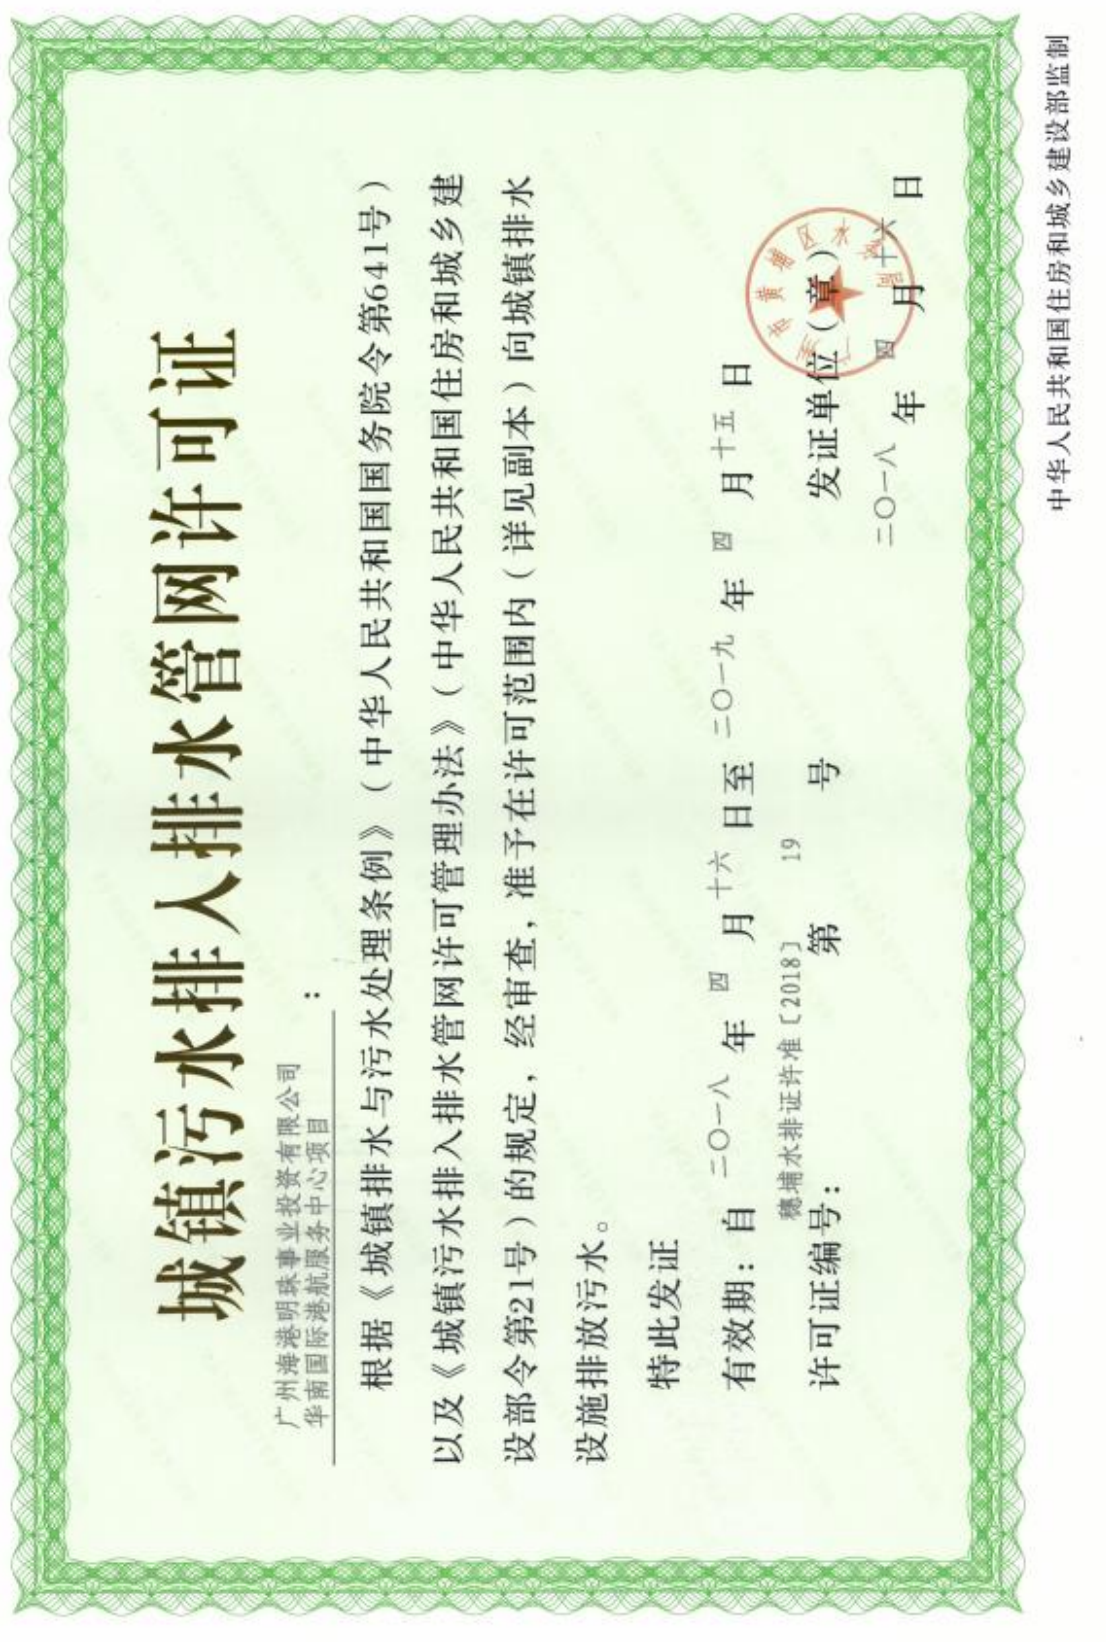 城镇污水排入排水管网许可证
广州海港明珠事业投资有限公司
华南国际港航服务中心项目
：
根据《城镇排水与污水处理条例》（中华人民共和国国务院令第641号）
以及《城镇污水排入排水管网许可管理办法》（中华人民共和国住房和城乡建
设部令第21号）的规定，经审查，准予在许可范围内（详见副本）向城镇排水
设施排放污水。
特此发证
有效期：自 二〇一八 年 四 月 十六 日至 二〇一九 年 四 月 十五 日
许可证编号： 穗埔水排证许准〔2018〕 第 19 号
发证单位（章）
二〇一八 年 四 月 十六 日
广州市黄埔区水务局
中华人民共和国住房和城乡建设部监制